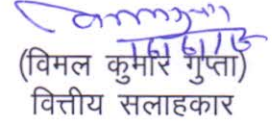 (विमल कुमार गुप्ता)
वित्तीय सलाहकार